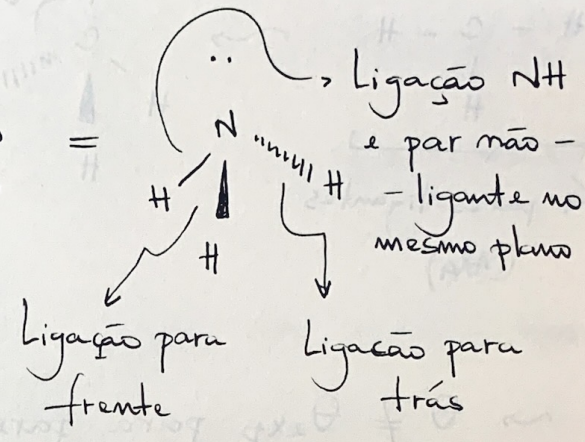 =
··
N
H
H
H
Ligação NH
e par não-
-ligante no
mesmo plano
Ligação para
frente
Ligacão para
trás